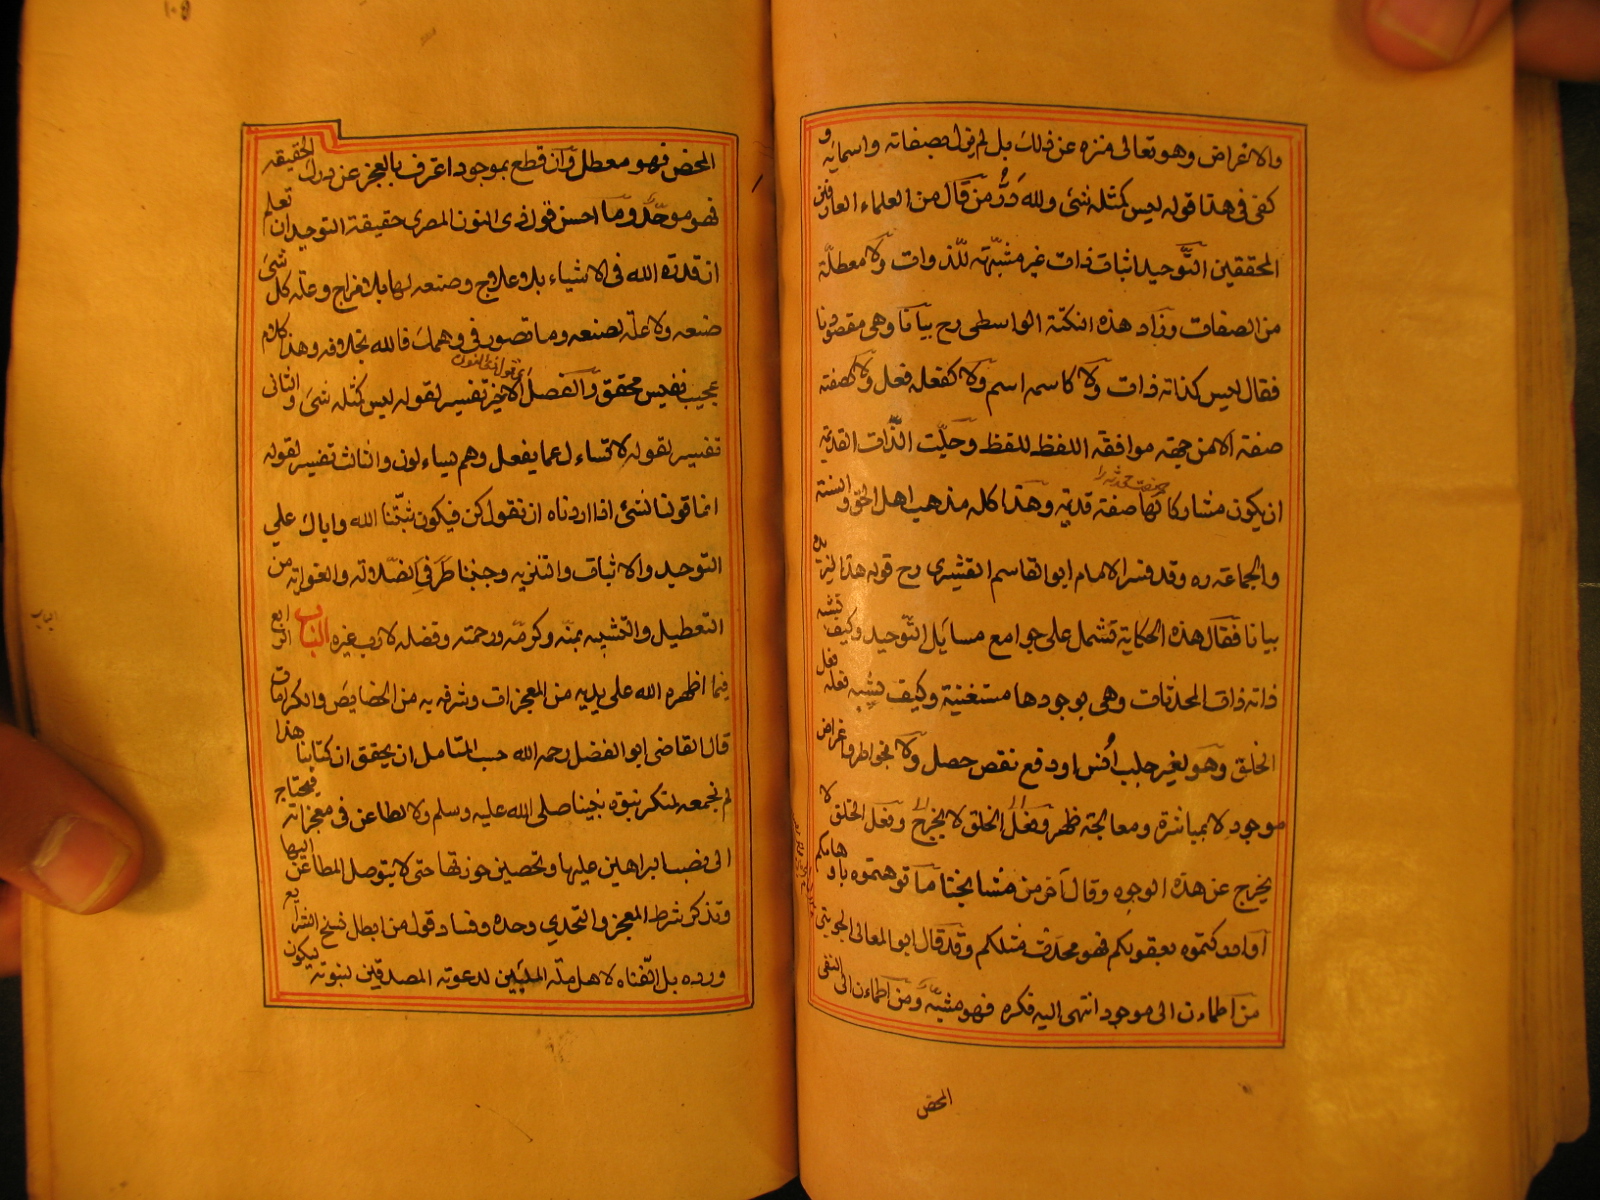 والاغراض وهو تعالى منزه عن ذلك بل لم يزل بصفاته واسمائه و
كفى فى هذا قوله ليس كمثله شئ ولله دَرُّ من قال من العلماء العارفين
المحققين التَّوحيد اثبات ذات غير مشبّهة للذّوات ولا معطلّة
من الصفات وزاد هذه النكتة الواسطى رح بيانا وهى مقصودنا
فقال ليس كذاته ذات ولا كاسمه اسم ولا كفعله فعل ولا كصفته
صفة الا من جهة موافقة اللفظ للفظ وجلّت الذّات القديمة
ان يكون لها صفة
قديمة وهذا كله مذهب اهل الحق والسنة
والجماعة ره وقد فسر الامام ابو القاسم القشيرى رح قوله هذا ليزيد
بيانا فقال هذه الحكاية تشمل على جوامع مسايل التّوحيد وكيف تشبه
ذاته ذات المحدثات وهى بوجودها مستغنية وكيف يشبه فعله فعل
الخلق وهو لغير جلب اُنس او دفع نقص حصل ولا بخواطر واغراض
موجود لا بمباشرة ومعالجة ظهر وفعل الخلق لا يخرج وفعل الخلق لا
يخرج عن هذه الوجوه وقال آخر من مشايخنا ما توهمتوه باوهامكم
او ادركتموه بعقولكم فهو محدث مثلكم وقد قال ابو المعالى الجوينى
من اطمأن الى موجود انتهى اليه فكره فهو مشبّه ومن اطمأن الى النفى
المحض
المحض فهو معطل وان قطع بموجود اعترف بالعجز عن درك الحقيقة
فهو موحّد وما احسن قول ذى النون المصرى حقيقة التوحيد ان تعلم
ان قدرة الله فى الاشياء بلا علاج وصنعه لها بلا مزاج وعلة كل شئ
صنعه ولا علة لصنعه وما تصور فى وهمك فالله بخلافه وهذا كلام
عجيب نفيس محقق والفصل الاخير تفسير لقوله ليس كمثله شئ والثانى
تفسير لقوله لا تسأل عما يفعل وهم يسألون والثالث تفسير لقوله
انما قولنا لشئ اذا اردناه ان نقول كن فيكون ثبّتنا الله واياك على
التوحيد والاثبات والتنزيه وجنبنا طرفى الضّلالة والغواية من
التعطيل والتشبيه بمنّه وكرمه ورحمته وفضله لا رب غيره الباب الرابع
فيما اظهره الله على يديه من المعجزات وشرفه به من الخصايص والكرامات
قال القاضى ابو الفضل رحمه الله حسب المتامل ان يحقق ان كتابنا هذا
لم نجمعه لمنكر نبوة نبينا صلى الله عليه وسلم ولا لطاعن فى معجزاته فيحتاج
الى نصب براهين عليها وتحصين حوزتها حتى لا يتوصل المطاعن اليها
ونذكر شرط المعجز والتحدى وحده وفساد قول من ابطل نسخ الشرايع
ورده بل الّفناه لاهل ملّة الملبّين لدعوته المصدقين لنبوته ليكون